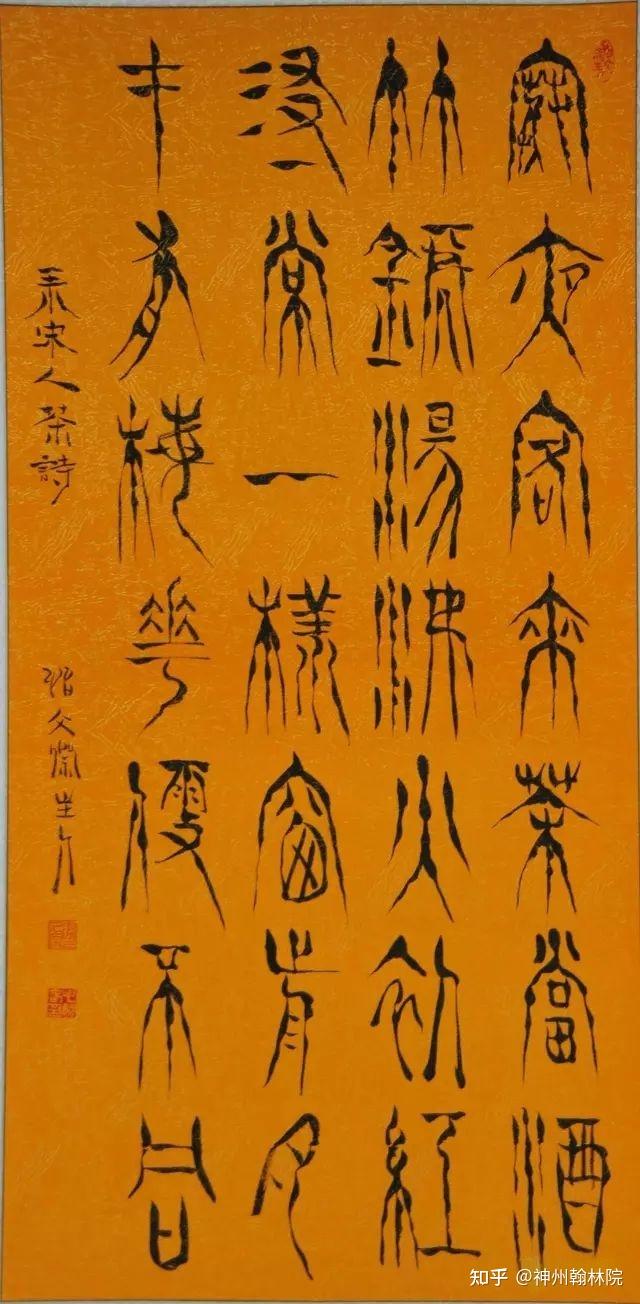 寒夜客來茶當酒
竹鑪湯沸火初紅
尋常一樣窗前月
才有梅華便不同
录宋人茶詩
知乎 @神州翰林院